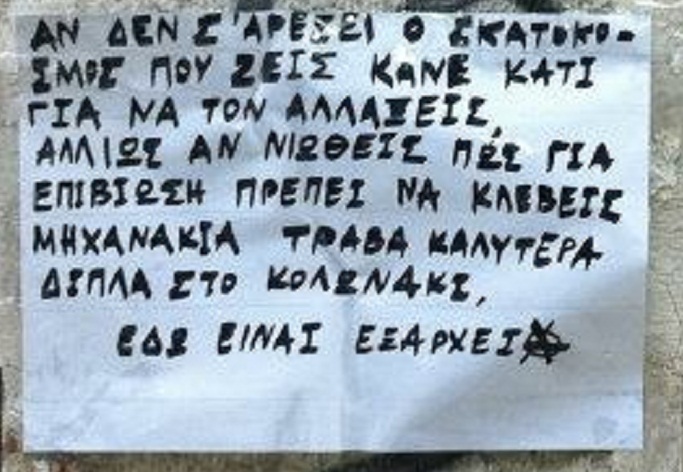 ΑΝ ΔΕΝ Σ'ΑΡΕΣΕΙ Ο ΣΚΑΤΟΚΟ-
ΣΜΟΣ ΠΟΥ ΖΕΙΣ ΚΑΝΕ ΚΑΤΙ
ΓΙΑ ΝΑ ΤΟΝ ΑΛΛΑΞΕΙΣ,
ΑΛΛΙΩΣ ΑΝ ΝΙΩΘΕΙΣ ΠΩΣ ΓΙΑ
ΕΠΙΒΙΩΣΗ ΠΡΕΠΕΙ ΝΑ ΚΛΕΒΕΙΣ
ΜΗΧΑΝΑΚΙΑ ΤΡΑΒΑ ΚΑΛΥΤΕΡΑ
ΔΙΠΛΑ ΣΤΟ ΚΟΛΩΝΑΚΙ,
ΕΔΩ ΕΙΝΑΙ ΕΞΑΡΧΕΙΑ